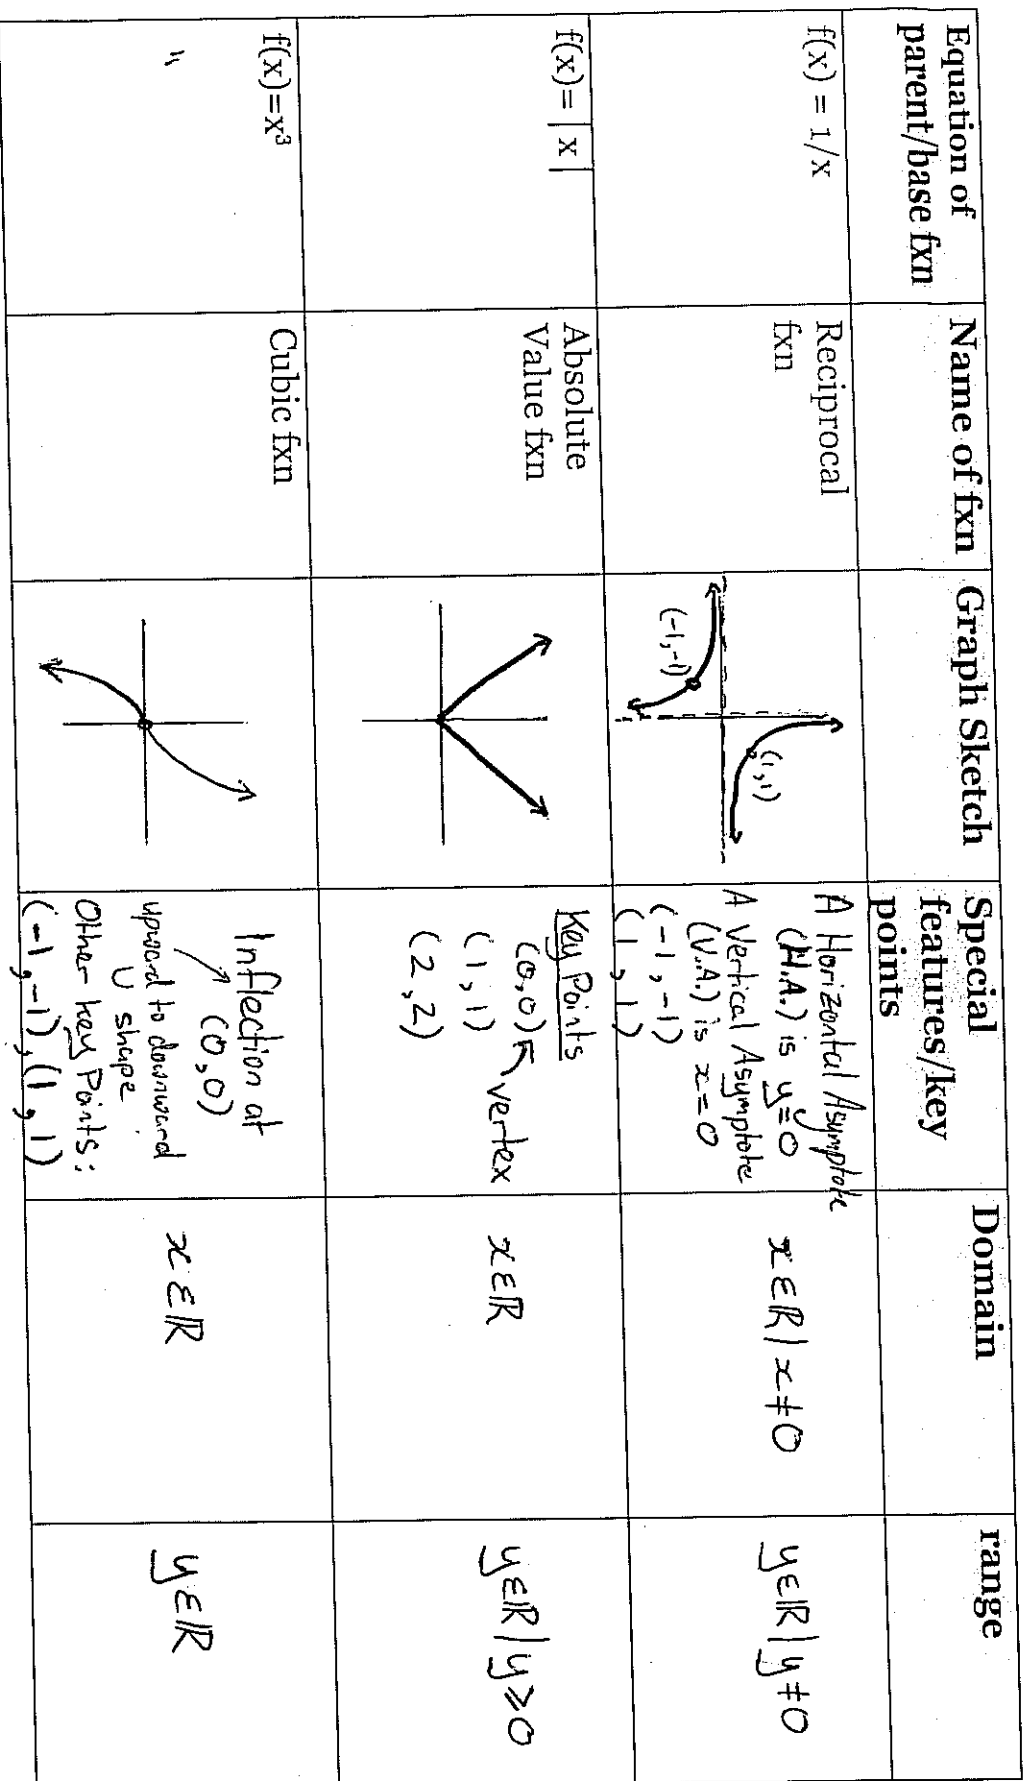 Equation of
parent/base fxn
Name of fxn
Graph Sketch
Special
features/key
points
Domain
range
f(x) = 1/x
Reciprocal
fxn
(-1,-1)
(1,1)
A Horizontal Asymptote
(H.A.) is y=0
A Vertical Asymptote
(V.A.) is x=0
(-1,-1)
(1,1)
x∈ℝ | x≠0
y∈ℝ | y≠0
f(x)= | x |
Absolute
Value fxn
Key Points
(0,0) ↖ vertex
(1,1)
(2,2)
x∈ℝ
y∈ℝ | y≥0
f(x)=x³
Cubic fxn
Inflection at
(0,0)
upward to downward
U shape
Other key Points:
(-1,-1), (1,1)
x∈ℝ
y∈ℝ